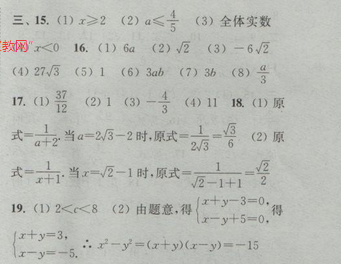 三、15. (1) x≥2 (2) a≤4/5 (3) 全体实数
(4) x<0 16. (1) 6a (2) √2 (3) −6√2
(4) 27√3 (5) 1 (6) 3ab (7) 3b (8) a/3
17. (1) 37/12 (2) 1 (3) −4/3 (4) 11 18. (1) 原
式=1/(a+2). 当 a=2√3−2 时, 原式=1/(2√3)=√3/6 (2) 原
式=1/(x+1). 当 x=√2−1 时, 原式=1/(√2−1+1)=√2/2
19. (1) 2<c<8 (2) 由题意, 得 {x+y−3=0, x−y+5=0, 得
{x+y=3, x−y=−5. ∴ x²−y²=(x+y)(x−y)=−15
教网